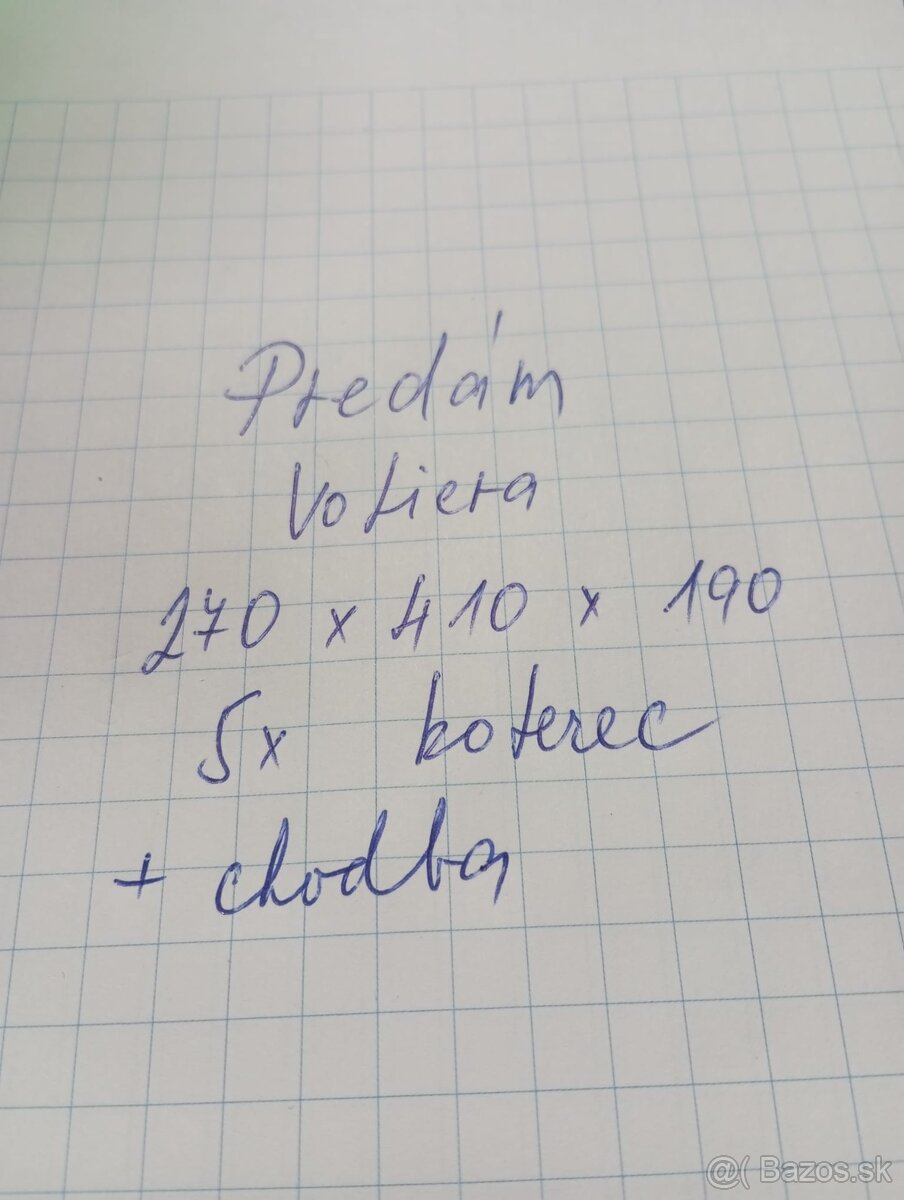 Predám
Voliera
270 x 410 x 190
5x koterec
+ chodba
@( Bazos.sk